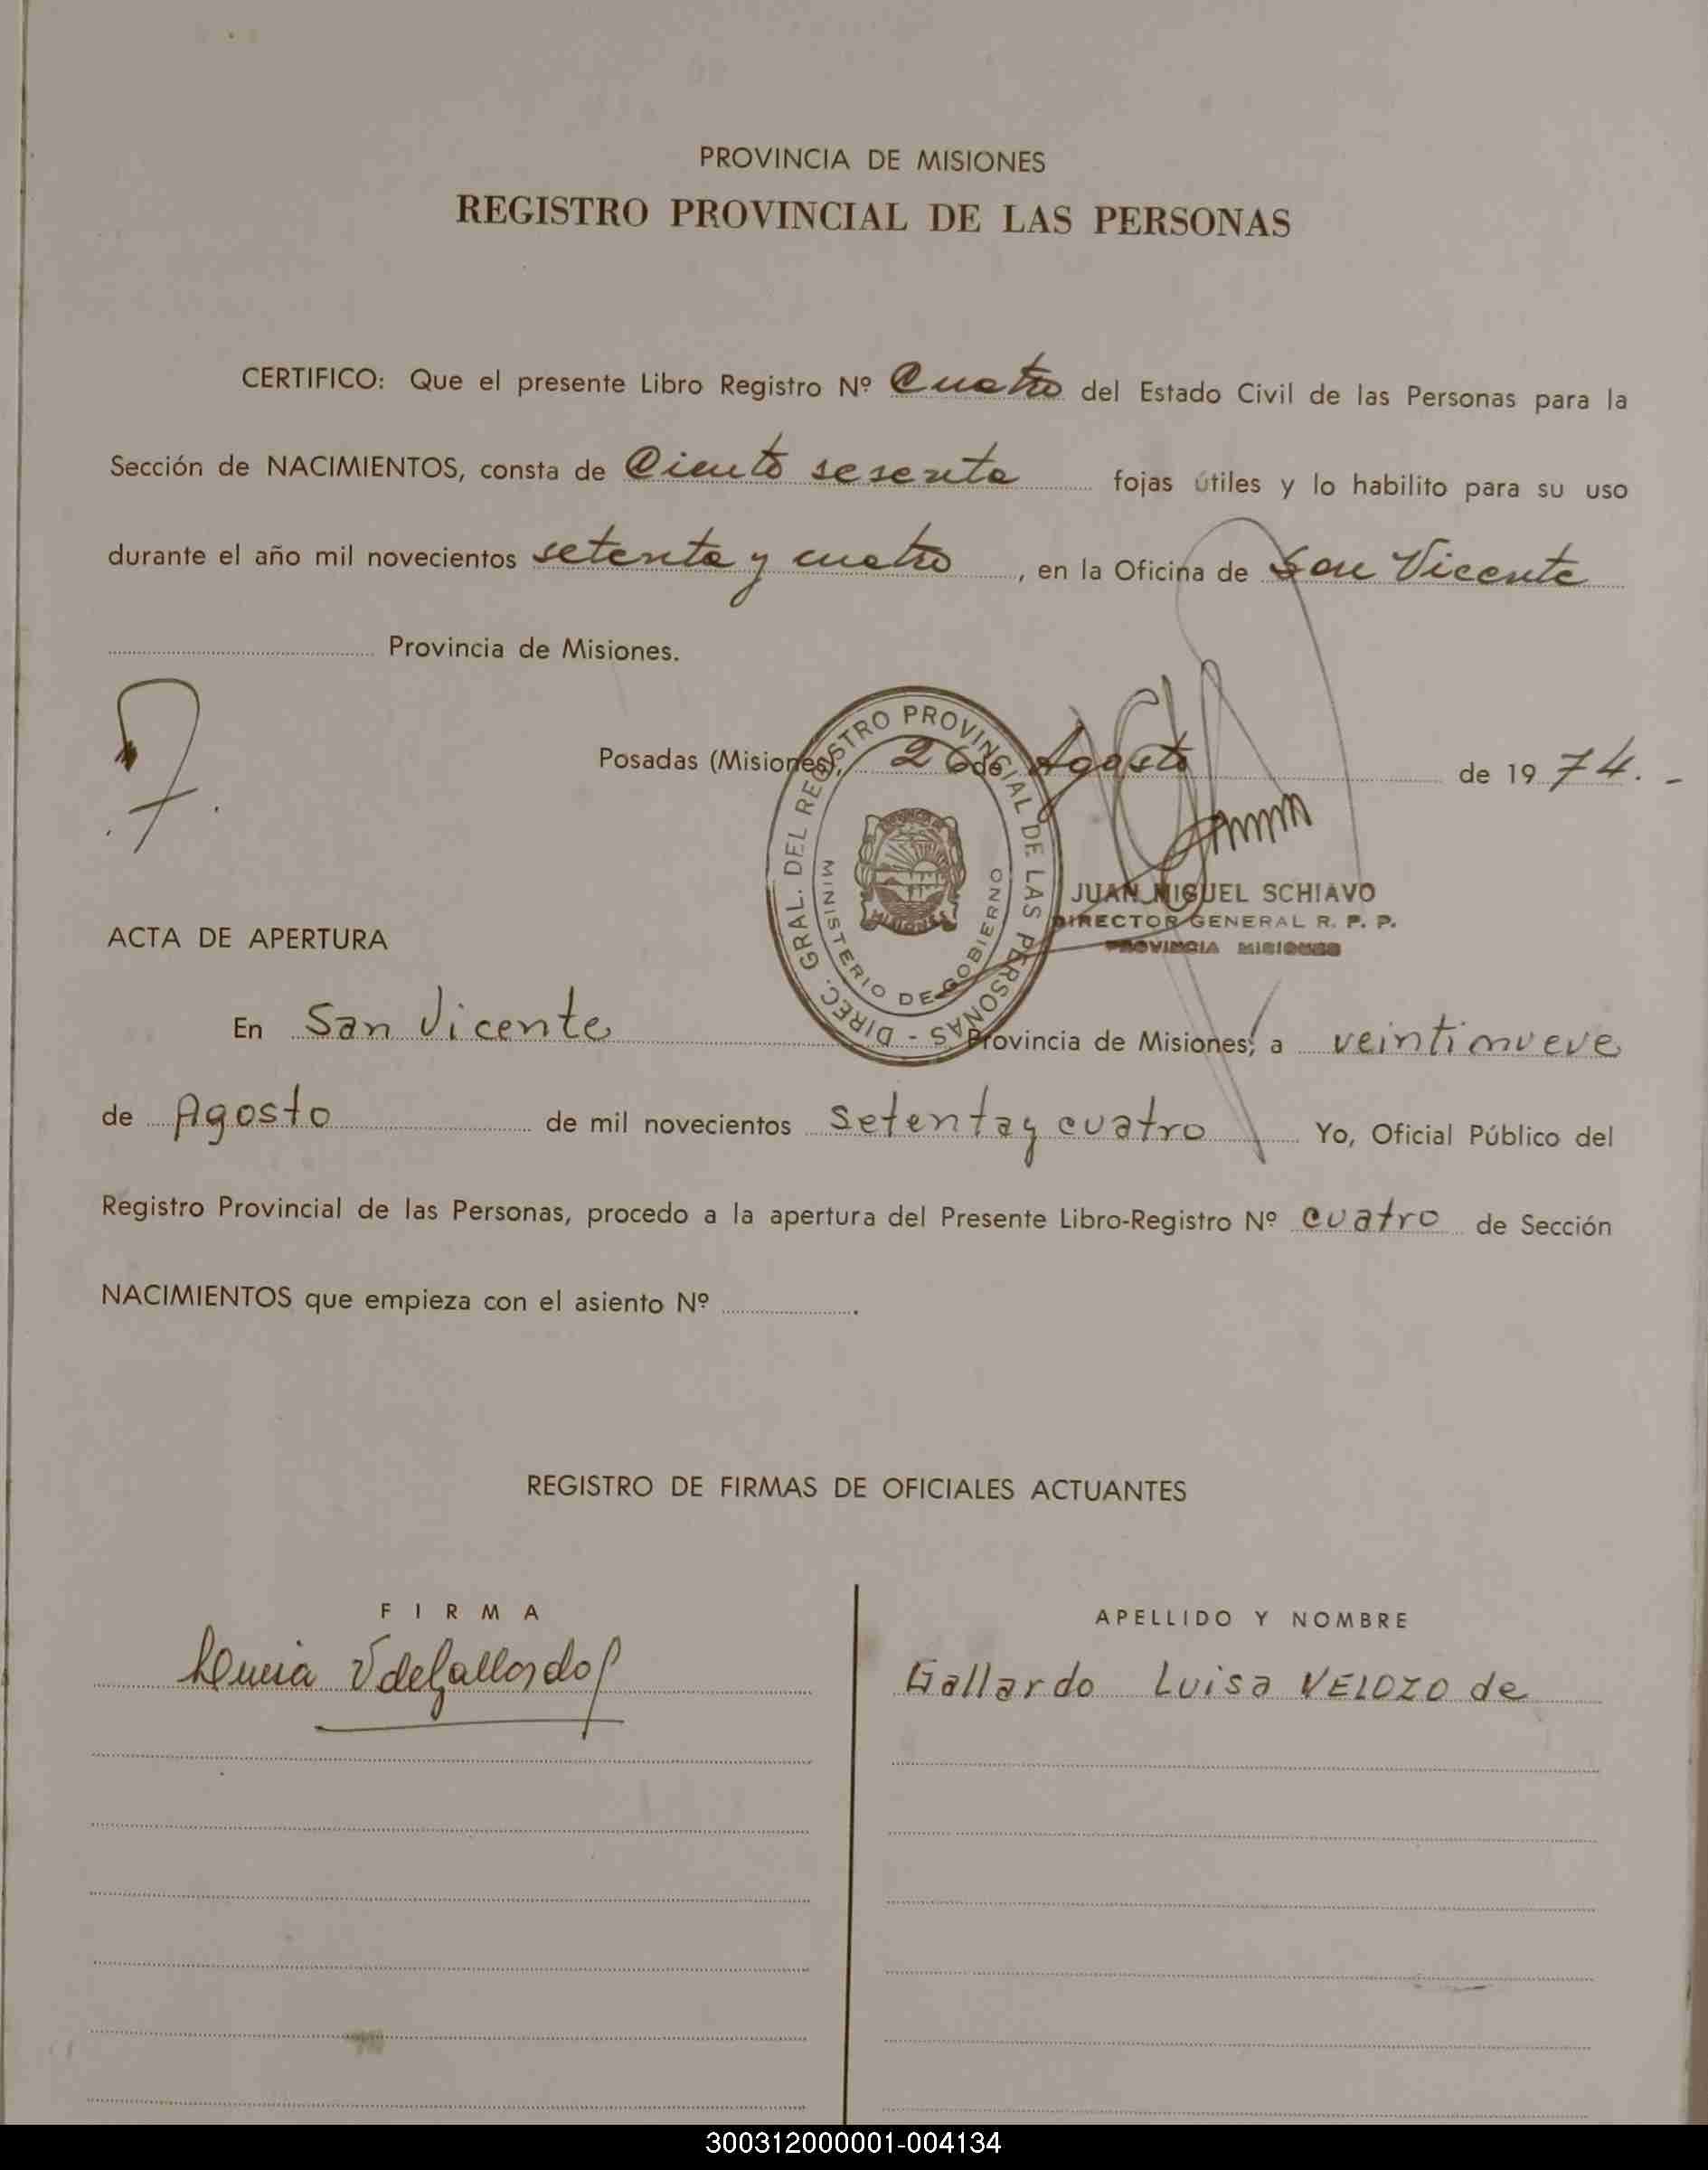 PROVINCIA DE MISIONES
REGISTRO PROVINCIAL DE LAS PERSONAS
CERTIFICO: Que el presente Libro Registro Nº Cuatro del Estado Civil de las Personas para la
Sección de NACIMIENTOS, consta de Ciento sesenta fojas útiles y lo habilito para su uso
durante el año mil novecientos setenta y cuatro, en la Oficina de San Vicente
Provincia de Misiones.
Posadas (Misiones), 26 de Agosto de 1974.-
DIREC. GRAL. DEL REGISTRO PROVINCIAL DE LAS PERSONAS -
MINISTERIO DE GOBIERNO
MISIONES
JUAN MIGUEL SCHIAVO
DIRECTOR GENERAL R. P. P.
PROVINCIA MISIONES
ACTA DE APERTURA
En San Vicente Provincia de Misiones, a veintinueve
de Agosto de mil novecientos setenta y cuatro Yo, Oficial Público del
Registro Provincial de las Personas, procedo a la apertura del Presente Libro-Registro Nº cuatro de Sección
NACIMIENTOS que empieza con el asiento Nº .
REGISTRO DE FIRMAS DE OFICIALES ACTUANTES
FIRMA
APELLIDO Y NOMBRE
V de Gallardo
Gallardo Luisa VELOZO de
300312000001-004134